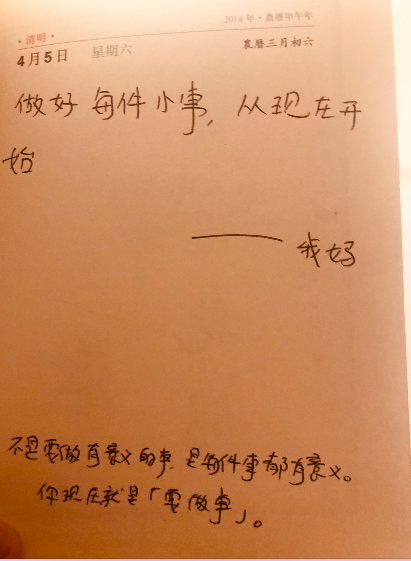 2014年·農曆甲午年
·清明·
4月5日 星期六 農曆三月初六
做好每件小事，从现在开
始
—— 我好
不是要做有意义的事，是每件事都有意义。
你现在就是「要做事」。